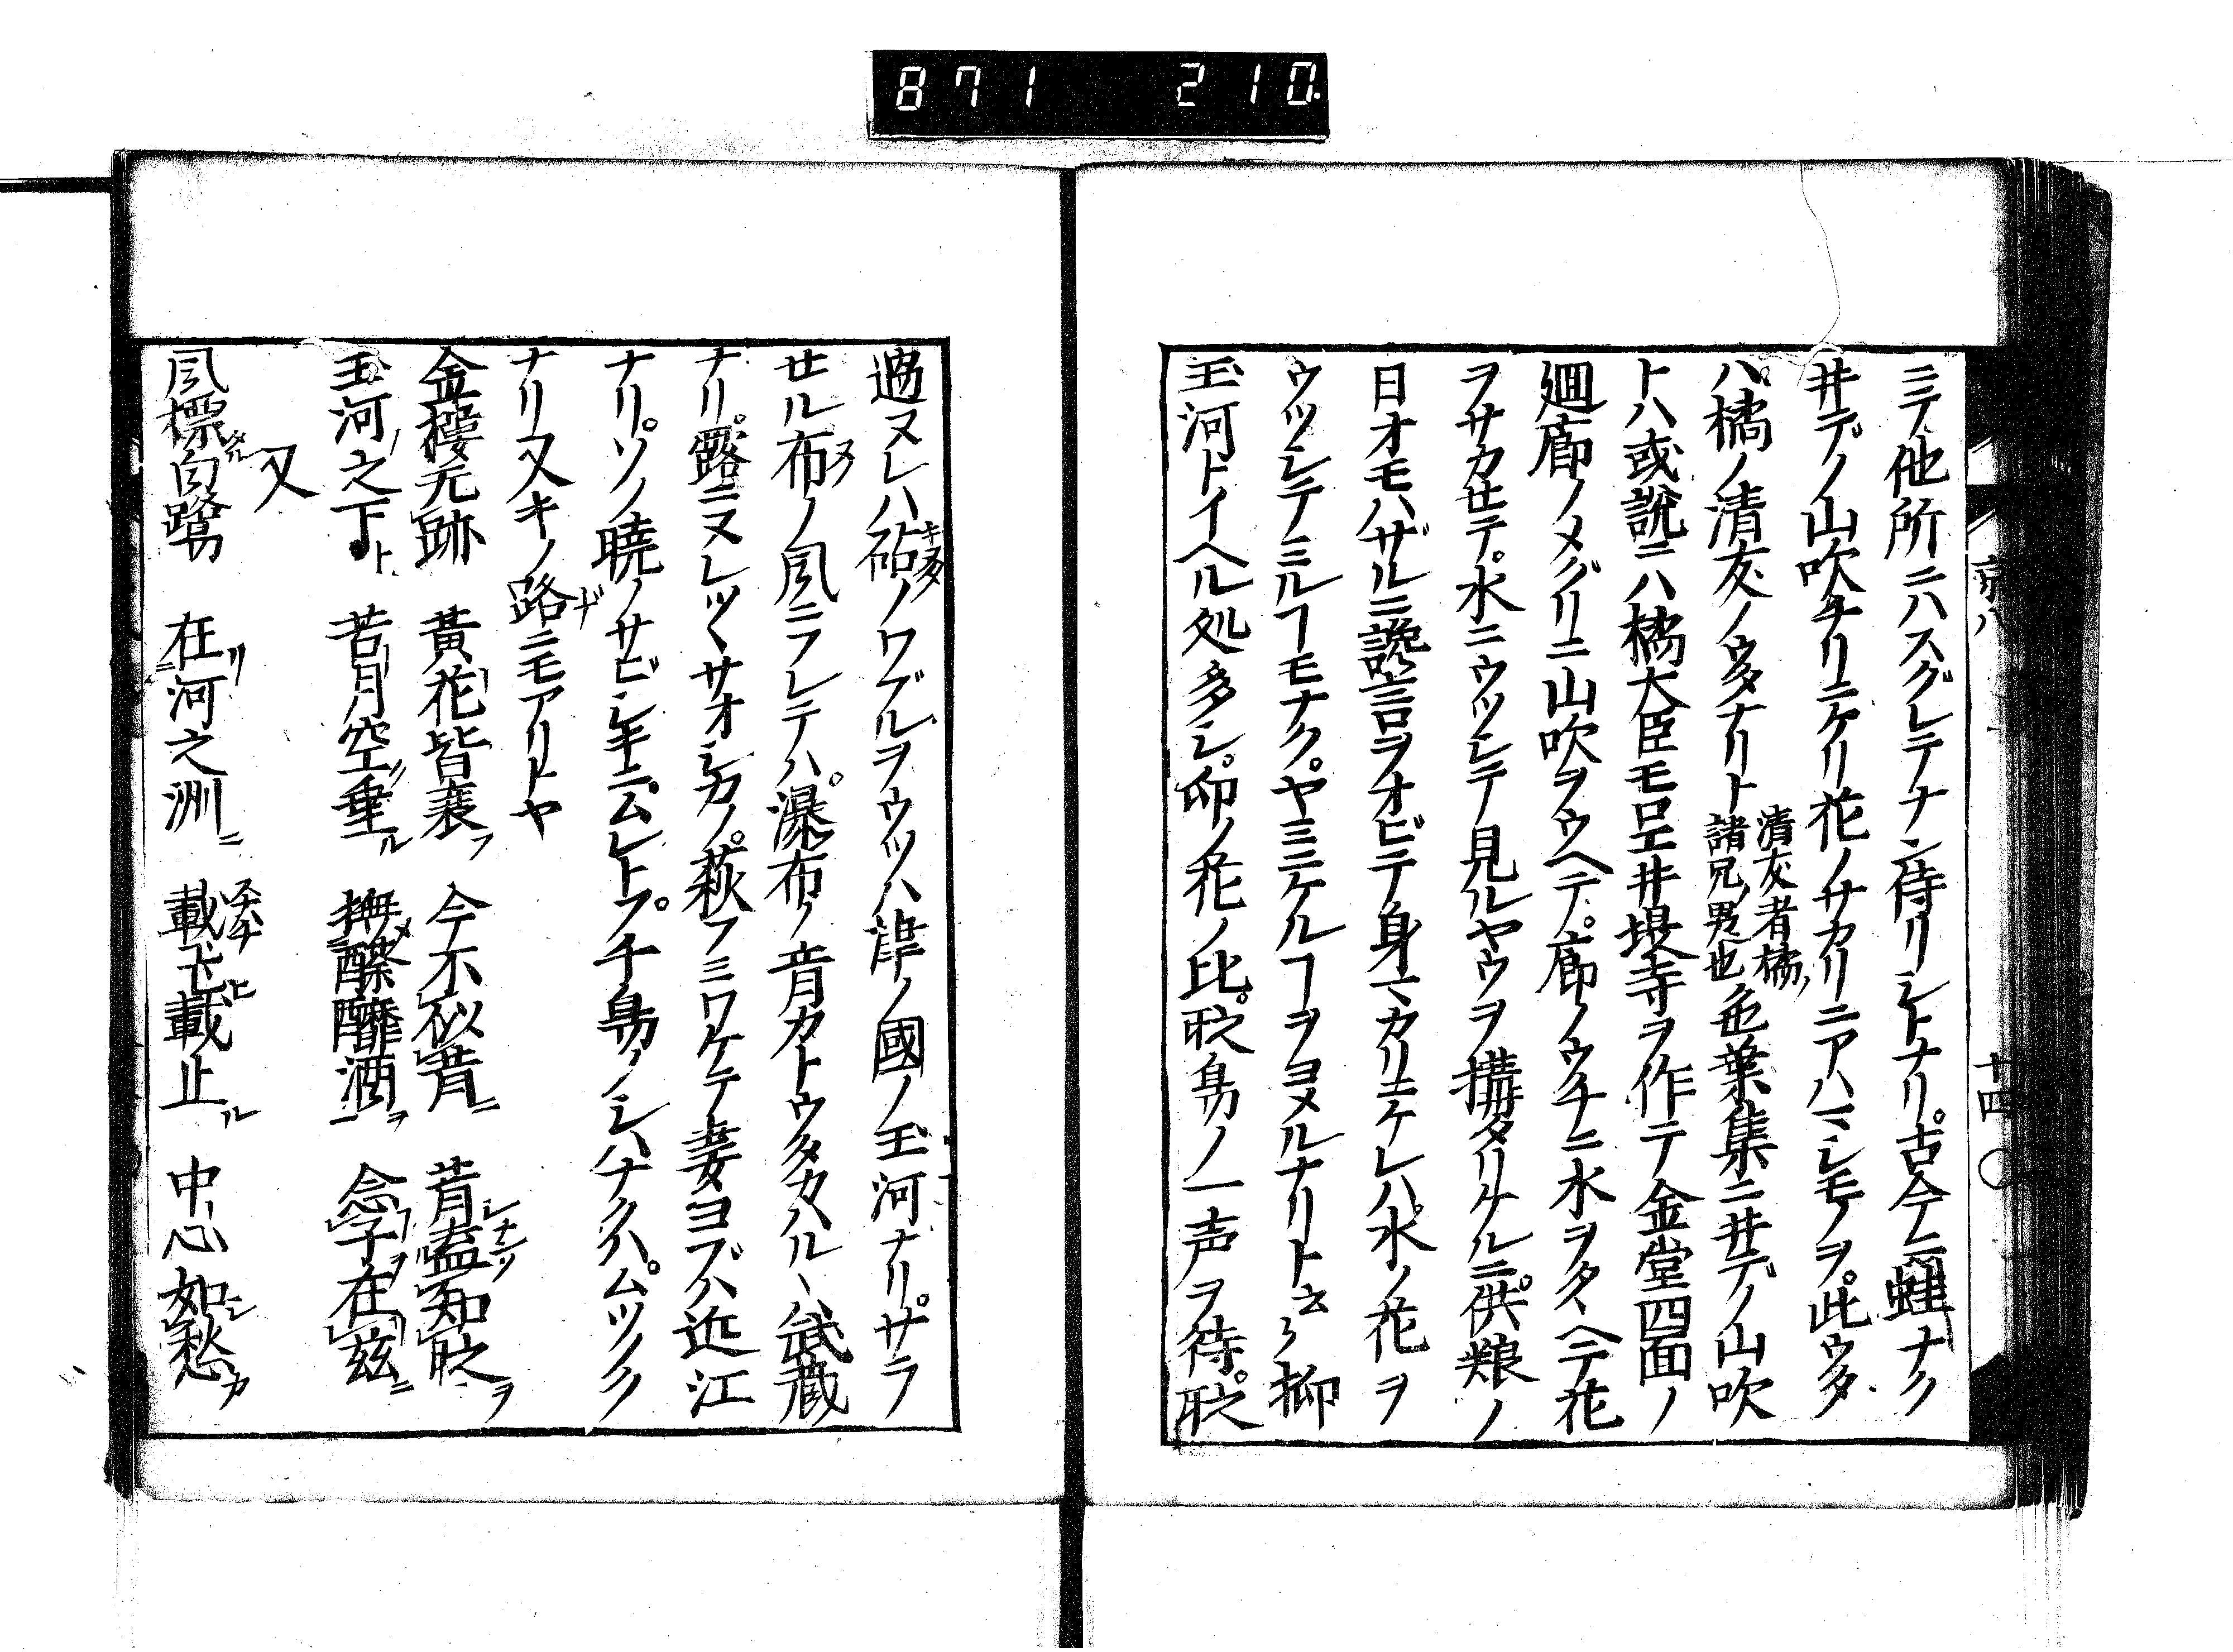 871 210
京八 十四
ニテ他所ニハスグレテナン侍リシトナリ。古今ニ蛙ナク
井デノ山吹チリニケリ花ノサカリニアハマシモノヲ。此ウタ
ハ。橘ノ清友ノウタナリト 清友者橘ノ諸兄ノ男也 色葉集ニ井デノ山吹
トハ或説ニハ橘大臣モロエ井堤寺ヲ作テ金堂四面ノ
廻廊ノメグリニ山吹ヲウヘテ。廊ノウチニ水ヲタヽヘテ花
ヲサカせテ。水ニウツシテ見ルヤウヲ構タリケルニ。供粮ノ
日オモハザルニ讒言ヲオビテ身マカリニケレハ。水ノ花ヲ
ウツシテノミルヿモナク。ヤミニケルヿヲヨメルナリト云々抑
玉河トイヘル処多シ。卯ノ花ノ比。郭鳥ノ一声ヲ待。
過ヌレハ砧キヌタノワブルヲウツハ津ノ國ノ玉河ナリ。サラ
せル布ヌノノ風ニフレテハ。瀑布ノ音カトウタカハルヽハ武蔵
ナリ。露ニヌレツヽサオシカノ。萩フミワケテ妻ヨブハ近江
ナリ。ソノ暁ノサビシキニ。ムレトブ。千鳥ノシハナクハ。ムツノク
ナリ又キノ路ヂニモアリトヤ
金樓无跡 黄花皆衰フ 今不似昔ニ 昔盍知ヲ
玉河ノ之下ト 苦月空垂ル 撫醾酒ヲ 念字在茲ニ
又
風標タル白鷺 在リ河之洲ニ 載スナハチ飛ヒ載止ル 中心如シ愁カ